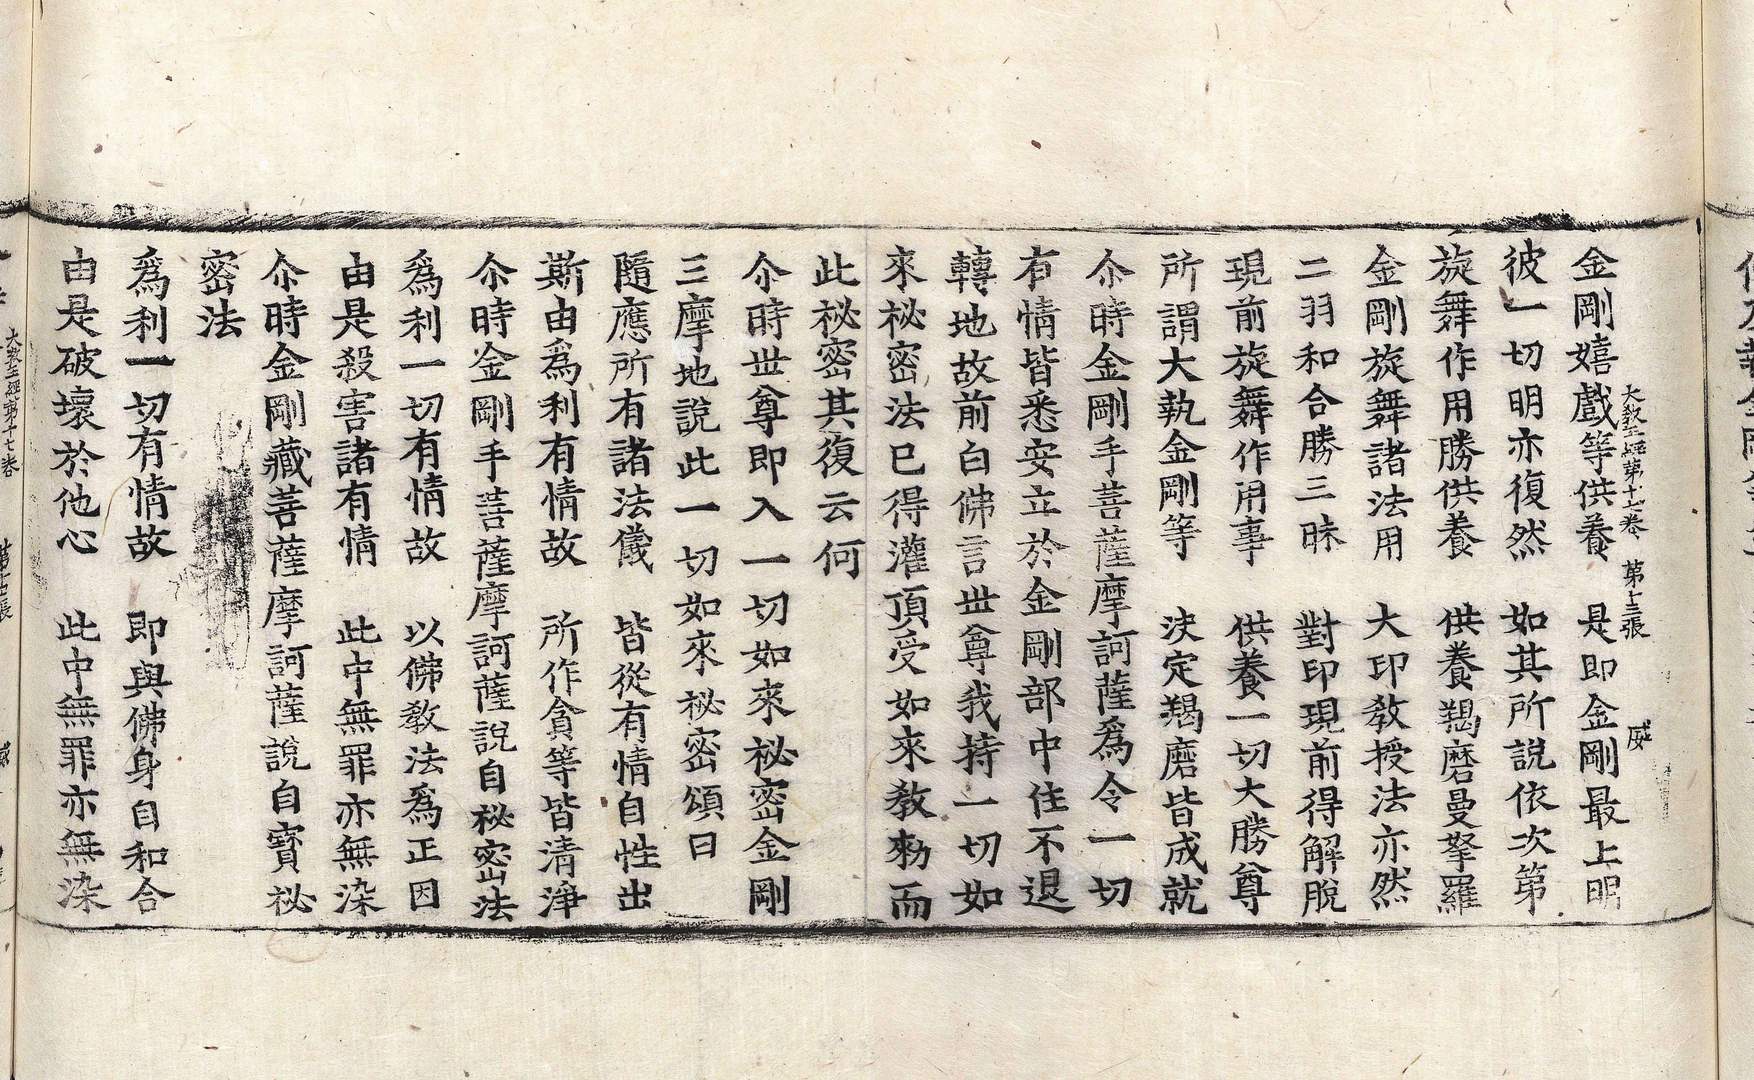 大敎王經第十七卷　第十三張　威
金剛嬉戲等供養　是即金剛最上明
彼一切明亦復然　如其所說依次第
旋舞作用勝供養　供養羯磨曼拏羅
金剛旋舞諸法用　大印敎授法亦然
二羽和合勝三昧　對印現前得解脫
現前旋舞作用事　供養一切大勝尊
所謂大執金剛等　決定羯磨皆成就
尒時金剛手菩薩摩訶薩爲令一切
有情皆悉安立於金剛部中住不退
轉地故前白佛言世尊我持一切如
來祕密法已得灌頂受如來敎勑而
此祕密其復云何
尒時世尊即入一切如來祕密金剛
三摩地說此一切如來祕密頌曰
隨應所有諸法儀　皆從有情自性出
斯由爲利有情故　所作貪等皆清淨
尒時金剛手菩薩摩訶薩說自祕密法
爲利一切有情故　以佛敎法爲正因
由是殺害諸有情　此中無罪亦無染
尒時金剛藏菩薩摩訶薩說自寶祕
密法
爲利一切有情故　即與佛身自和合
由是破壞於他心　此中無罪亦無染
大敎王經第十七卷　第十四張　威